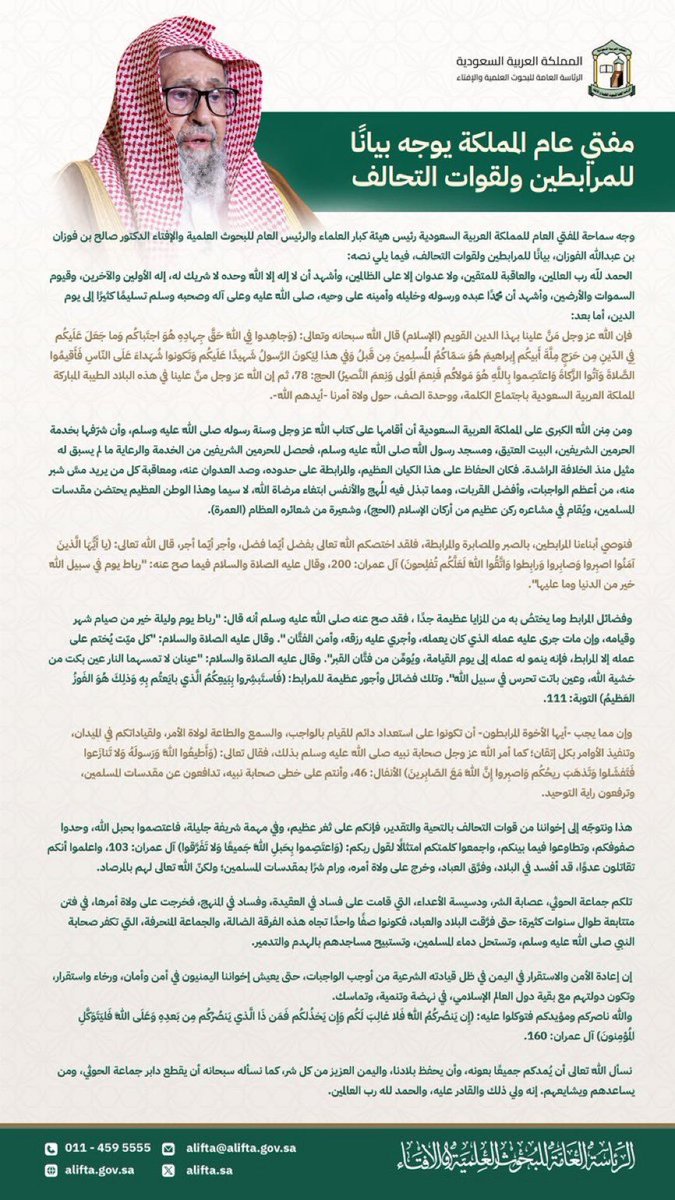 المملكة العربية السعودية
الرئاسة العامة للبحوث العلمية والإفتاء
مفتي عام المملكة يوجه بيانًا
للمرابطين ولقوات التحالف
وجه سماحة المفتي العام للمملكة العربية السعودية رئيس هيئة كبار العلماء والرئيس العام للبحوث العلمية والإفتاء الدكتور صالح بن فوزان
بن عبدالله الفوزان، بيانًا للمرابطين ولقوات التحالف، فيما يلي نصه:
الحمد للّه رب العالمين، والعاقبة للمتقين، ولا عدوان إلا على الظالمين، وأشهد أن لا إله إلا الله وحده لا شريك له، إله الأولين والآخرين، وقيوم
السموات والأرضين، وأشهد أن محمدًا عبده ورسوله وخليله وأمينه على وحيه، صلى الله عليه وعلى آله وصحبه وسلم تسليمًا كثيرًا إلى يوم
الدين، أما بعد:
فإن الله عز وجل مَنَّ علينا بهذا الدين القويم (الإسلام) قال الله سبحانه وتعالى: (وَجاهِدوا فِي اللَّهِ حَقَّ جِهادِهِ هُوَ اجتَباكُم وَما جَعَلَ عَلَيكُم
فِي الدّينِ مِن حَرَجٍ مِلَّةَ أَبيكُم إِبراهيمَ هُوَ سَمّاكُمُ المُسلِمينَ مِن قَبلُ وَفي هذا لِيَكونَ الرَّسولُ شَهيدًا عَلَيكُم وَتَكونوا شُهَداءَ عَلَى النّاسِ فَأَقيمُوا
الصَّلاةَ وَآتُوا الزَّكاةَ وَاعتَصِموا بِاللَّهِ هُوَ مَولاكُم فَنِعمَ المَولى وَنِعمَ النَّصيرُ) الحج: 78، ثم إن الله عز وجل منَّ علينا في هذه البلاد الطيبة المباركة
المملكة العربية السعودية باجتماع الكلمة، ووحدة الصف، حول ولاة أمرنا -أيدهم الله-.
ومن مِنن الله الكبرى على المملكة العربية السعودية أن أقامها على كتاب الله عز وجل وسنة رسوله صلى الله عليه وسلم، وأن شرّفها بخدمة
الحرمين الشريفين، البيت العتيق، ومسجد رسول الله صلى الله عليه وسلم، فحصل للحرمين الشريفين من الخدمة والرعاية ما لم يسبق له
مثيل منذ الخلافة الراشدة. فكان الحفاظ على هذا الكيان العظيم، والمرابطة على حدوده، وصد العدوان عنه، ومعاقبة كل من يريد مسّ شبر
منه، من أعظم الواجبات، وأفضل القربات، ومما تبذل فيه المُهج والأنفس ابتغاء مرضاة الله، لا سيما وهذا الوطن العظيم يحتضن مقدسات
المسلمين، ويُقام في مشاعره ركن عظيم من أركان الإسلام (الحج)، وشعيرة من شعائره العظام (العمرة).
فنوصي أبناءنا المرابطين، بالصبر والمصابرة والمرابطة، فلقد اختصكم الله تعالى بفضل أيّما فضل، وأجر أيّما أجر، قال الله تعالى: (يا أَيُّهَا الَّذينَ
آمَنُوا اصبِروا وَصابِروا وَرابِطوا وَاتَّقُوا اللَّهَ لَعَلَّكُم تُفلِحونَ) آل عمران: 200، وقال عليه الصلاة والسلام فيما صح عنه: "رباط يوم في سبيل الله
خير من الدنيا وما عليها".
وفضائل المرابط وما يختصُّ به من المزايا عظيمة جدًا ، فقد صح عنه صلى الله عليه وسلم أنه قال: "رباط يوم وليلة خير من صيام شهر
وقيامه، وإن مات جرى عليه عمله الذي كان يعمله، وأجري عليه رزقه، وأمن الفتَّان ". وقال عليه الصلاة والسلام: "كل ميّت يُختم على
عمله إلا المرابط، فإنه ينمو له عمله إلى يوم القيامة، ويُؤمّن من فتَّان القبر". وقال عليه الصلاة والسلام: "عينان لا تمسهما النار عين بكت من
خشية الله، وعين باتت تحرس في سبيل الله". وتلك فضائل وأجور عظيمة للمرابط: (فَاستَبشِروا بِبَيعِكُمُ الَّذي بايَعتُم بِهِ وَذلِكَ هُوَ الفَوزُ
العَظيمُ) التوبة: 111.
وإن مما يجب -أيها الأخوة المرابطون- أن تكونوا على استعداد دائم للقيام بالواجب، والسمع والطاعة لولاة الأمر، ولقياداتكم في الميدان،
وتنفيذ الأوامر بكل إتقان؛ كما أمر الله عز وجل صحابة نبيه صلى الله عليه وسلم بذلك، فقال تعالى: (وَأَطيعُوا اللَّهَ وَرَسولَهُ وَلا تَنازَعوا
فَتَفشَلوا وَتَذهَبَ ريحُكُم وَاصبِروا إِنَّ اللَّهَ مَعَ الصّابِرينَ) الأنفال: 46، وأنتم على خطى صحابة نبيه، تدافعون عن مقدسات المسلمين،
وترفعون راية التوحيد.
هذا ونتوجّه إلى إخواننا من قوات التحالف بالتحية والتقدير، فإنكم على ثغر عظيم، وفي مهمة شريفة جليلة، فاعتصموا بحبل الله، وحدوا
صفوفكم، وتطاوعوا فيما بينكم، واجمعوا كلمتكم امتثالًا لقول ربكم: (وَاعتَصِموا بِحَبلِ اللَّهِ جَميعًا وَلا تَفَرَّقوا) آل عمران: 103، واعلموا أنكم
تقاتلون عدوًا، قد أفسد في البلاد، وفرَّق العباد، وخرج على ولاة أمره، ورام شرًا بمقدسات المسلمين؛ ولكنّ الله تعالى لهم بالمرصاد.
تلكم جماعة الحوثي، عصابة الشر، ودسيسة الأعداء، التي قامت على فساد في العقيدة، وفساد في المنهج، فخرجت على ولاة أمرها، في فتن
متتابعة طوال سنوات كثيرة؛ حتى فرَّقت البلاد والعباد، فكونوا صفًا واحدًا تجاه هذه الفرقة الضالة، والجماعة المنحرفة، التي تكفر صحابة
النبي صلى الله عليه وسلم، وتستحل دماء المسلمين، وتستبيح مساجدهم بالهدم والتدمير.
إن إعادة الأمن والاستقرار في اليمن في ظل قيادته الشرعية من أوجب الواجبات، حتى يعيش إخواننا اليمنيون في أمن وأمان، ورخاء واستقرار،
وتكون دولتهم مع بقية دول العالم الإسلامي، في نهضة وتنمية، وتماسك.
والله ناصركم ومؤيدكم فتوكلوا عليه: (إِن يَنصُركُمُ اللَّهُ فَلا غالِبَ لَكُم وَإِن يَخذُلكُم فَمَن ذَا الَّذي يَنصُرُكُم مِن بَعدِهِ وَعَلَى اللَّهِ فَليَتَوَكَّلِ
المُؤمِنونَ) آل عمران: 160.
نسأل الله تعالى أن يُمدكم جميعًا بعونه، وأن يحفظ بلادنا، واليمن العزيز من كل شر، كما نسأله سبحانه أن يقطع دابر جماعة الحوثي، ومن
يساعدهم ويشايعهم. إنه ولي ذلك والقادر عليه، والحمد لله رب العالمين.
الرئاسة العامة للبحوث العلمية والإفتاء
011 - 459 5555
alifta@alifta.gov.sa
alifta.gov.sa
alifta.sa